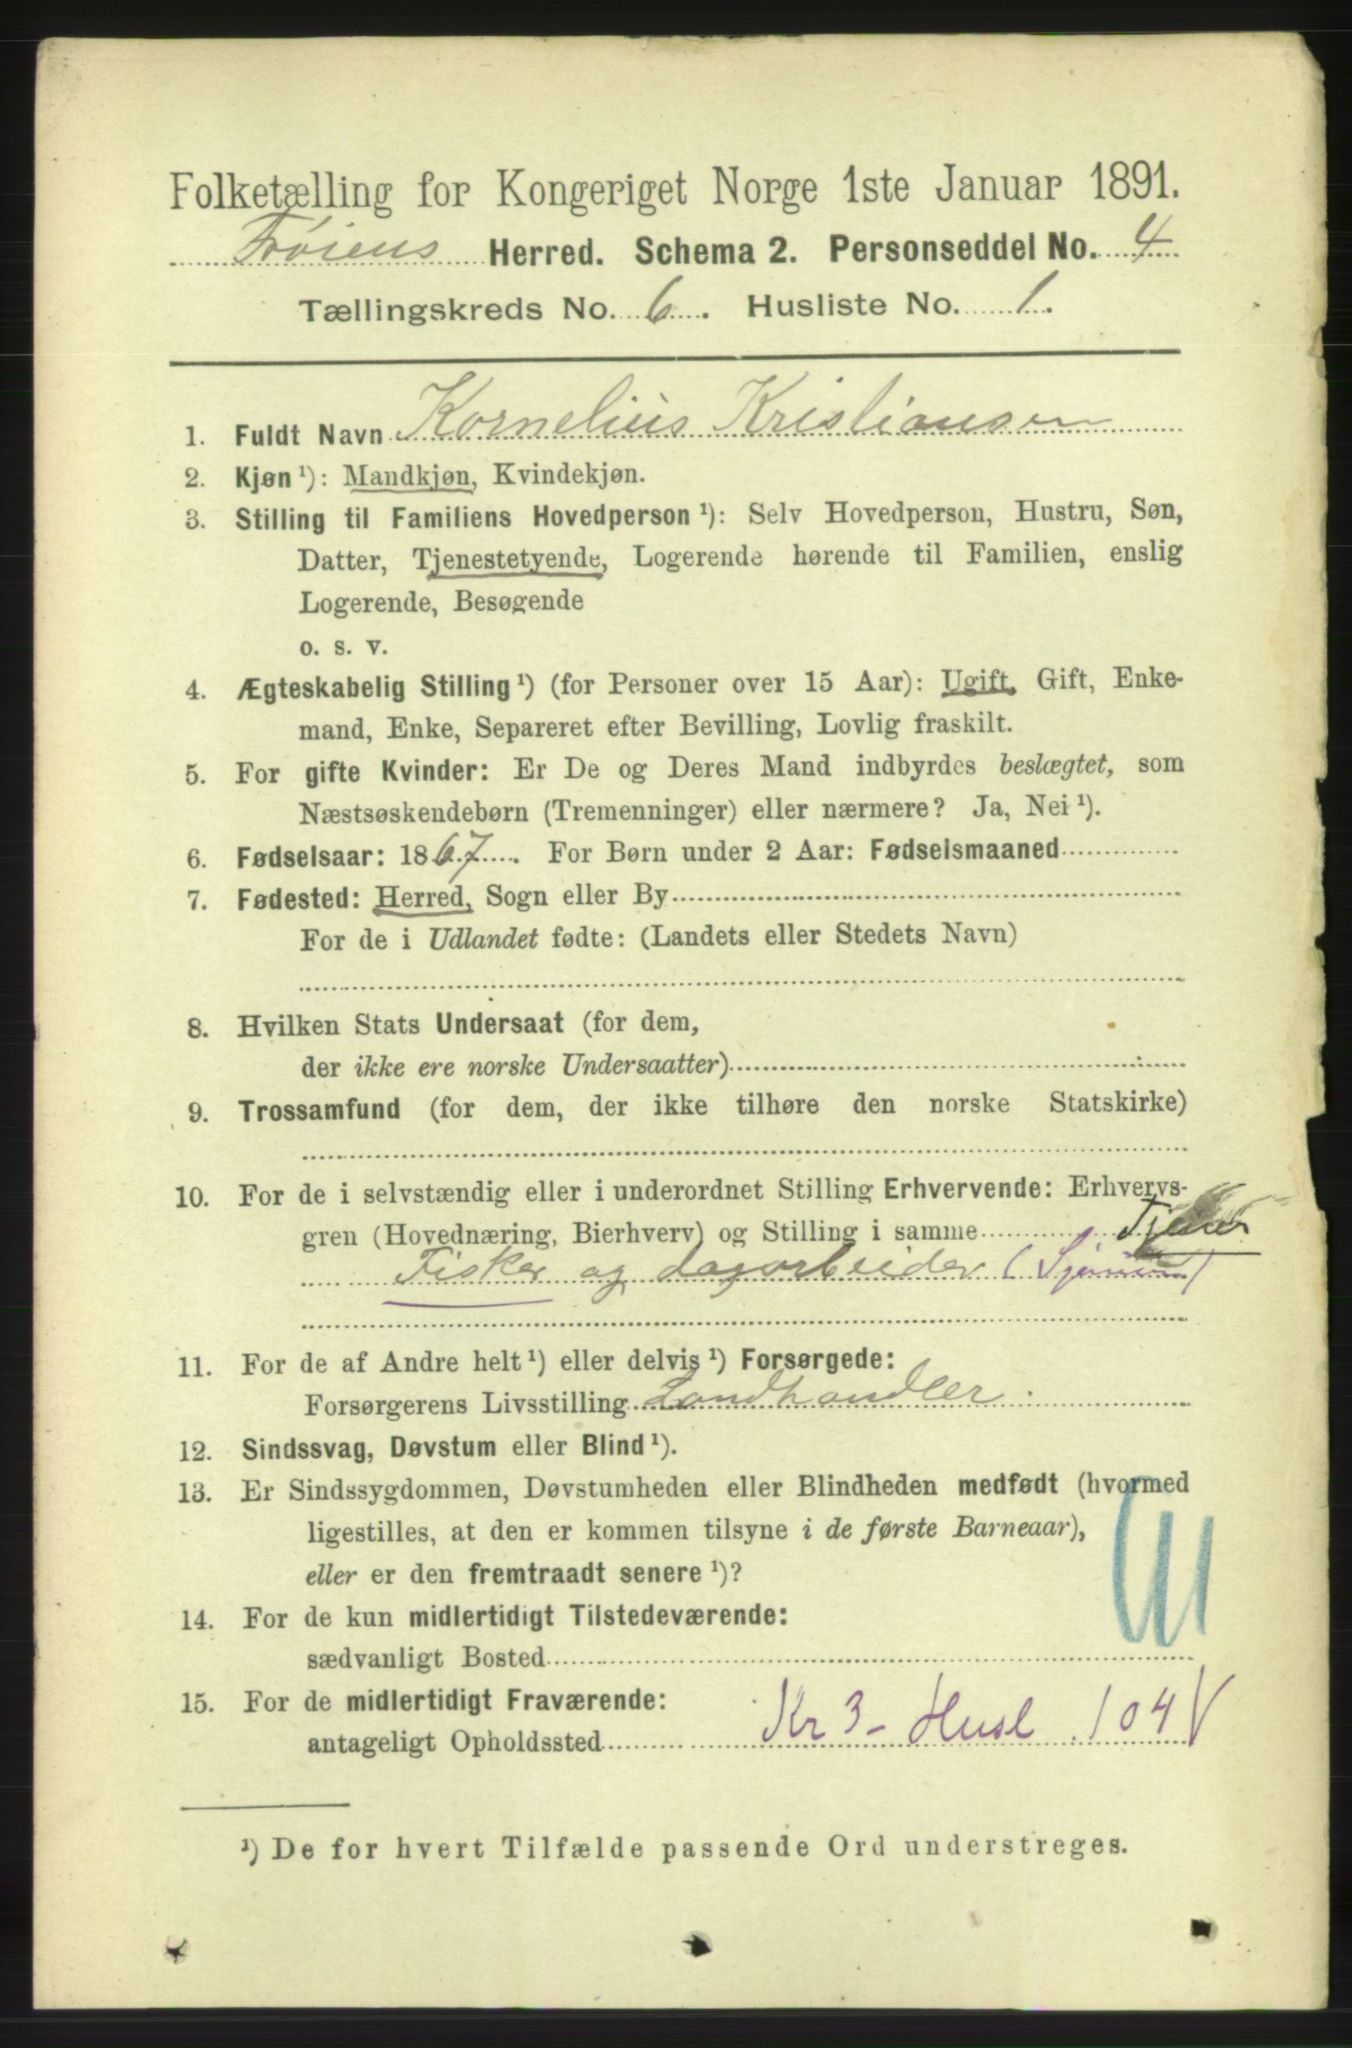 Folketælling for Kongeriget Norge 1ste Januar 1891.
Frøiens Herred. Schema 2. Personseddel No. 4
Tællingskreds No. 6. Husliste No. 1.
1. Fuldt Navn Kornelius Kristiansen
2. Kjøn ¹): Mandkjøn, Kvindekjøn.
3. Stilling til Familiens Hovedperson ¹): Selv Hovedperson, Hustru, Søn,
Datter, Tjenestetyende, Logerende hørende til Familien, enslig
Logerende, Besøgende
o. s. v.
4. Ægteskabelig Stilling ¹) (for Personer over 15 Aar): Ugift, Gift, Enke-
mand, Enke, Separeret efter Bevilling, Lovlig fraskilt.
5. For gifte Kvinder: Er De og Deres Mand indbyrdes beslægtet, som
Næstsøskendebørn (Tremenninger) eller nærmere? Ja, Nei ¹).
6. Fødselsaar: 1867. For Børn under 2 Aar: Fødselsmaaned
7. Fødested: Herred, Sogn eller By
For de i Udlandet fødte: (Landets eller Stedets Navn)
8. Hvilken Stats Undersaat (for dem,
der ikke ere norske Undersaatter)
9. Trossamfund (for dem, der ikke tilhøre den norske Statskirke)
10. For de i selvstændig eller i underordnet Stilling Erhvervende: Erhvervs-
gren (Hovednæring, Bierhverv) og Stilling i samme
Fisker og dagarbeider
11. For de af Andre helt ¹) eller delvis ¹) Forsørgede:
Forsørgerens Livsstilling Landhandler
12. Sindssvag, Døvstum eller Blind ¹).
13. Er Sindssygdommen, Døvstumheden eller Blindheden medfødt (hvormed
ligestilles, at den er kommen tilsyne i de første Barneaar),
eller er den fremtraadt senere ¹)?
14. For de kun midlertidigt Tilstedeværende:
sædvanligt Bosted
15. For de midlertidigt Fraværende:
antageligt Opholdssted Kr 3 - Husl 104 V
¹) De for hvert Tilfælde passende Ord understreges.